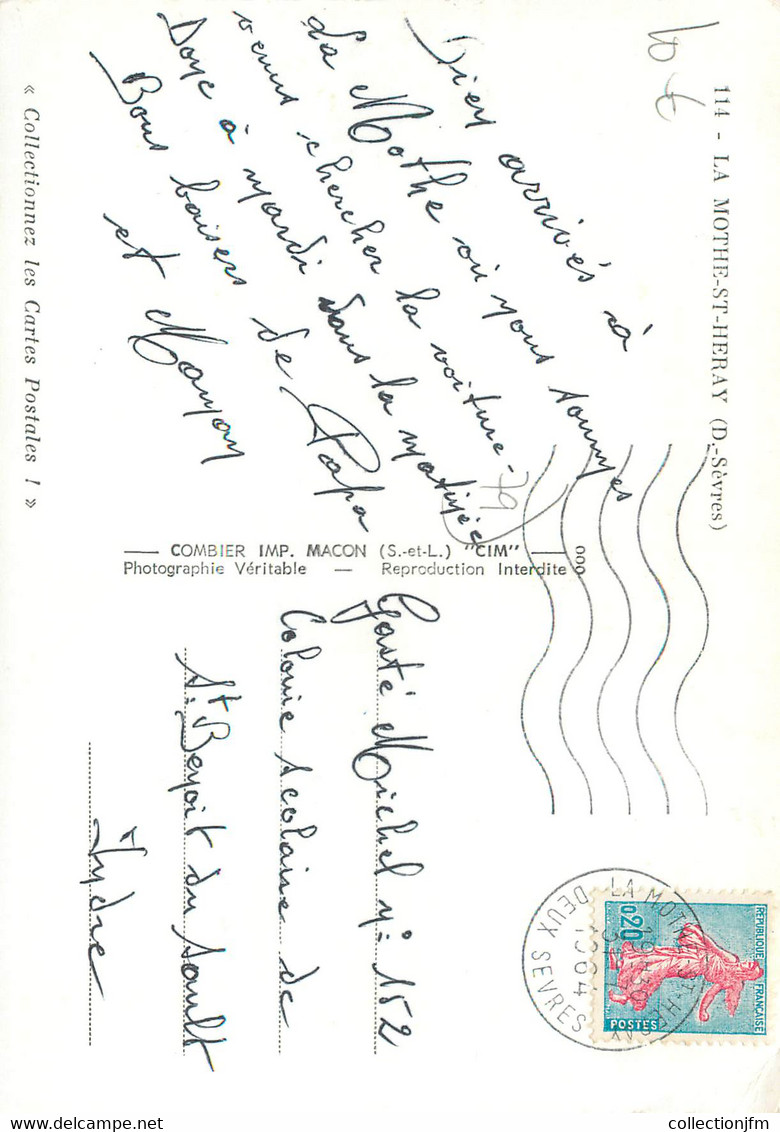 114 - LA MOTHE-ST-HERAY (D.-Sèvres)
10 €
Bien arrivés à
La Mothe où nous sommes
venus chercher la voiture.
Donc à mardi dans la matinée
Bons baisers de Papa
et Maman
79
« Collectionnez les Cartes Postales ! »
COMBIER IMP. MACON (S.-et-L.) "CIM"
Photographie Véritable — Reproduction Interdite
000
Gasté Michel n° 152
Colonie Scolaire de
St Benoit du Sault
Indre
LA MOTHE-ST-HERAY
19H30
1964
DEUX SEVRES
REPUBLIQUE FRANÇAISE
0,20
POSTES
collectionjfm